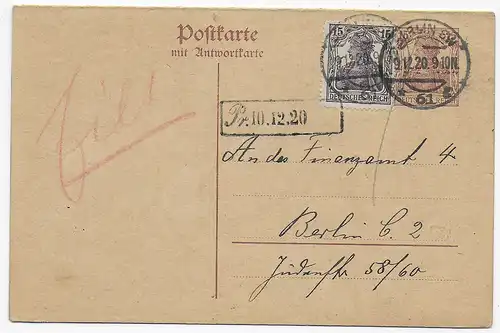 Postkarte
mit Antwortkarte
15 15
DEUTSCHES REICH
BERLIN SW
9.12.20. 9-10N.
* 61
Pr. 10.12.20
An das Finanzamt 4
Berlin C. 2
Jüdenstr 58/60